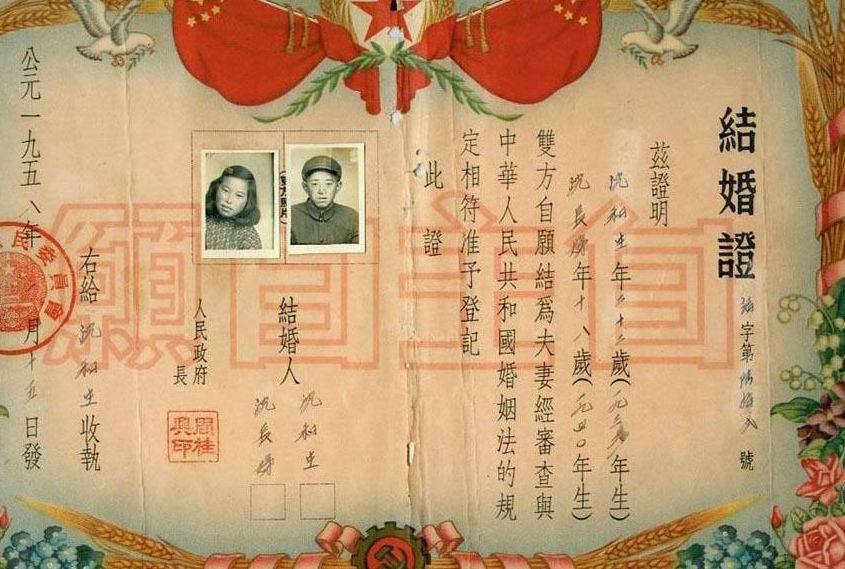 結婚證
字第 號
茲證明
沈和生年二十二歲(一九三 年生)
沈長娣年十八歲(一九四〇年生)
雙方自願結爲夫妻經審查與
中華人民共和國婚姻法的規
定相符准予登記
此證
自主自願
結婚人 沈和生
沈長娣
人民政府
長
周桂
興印
右給 沈和生 收執
公元一九五八年 月十五日發
民委員會